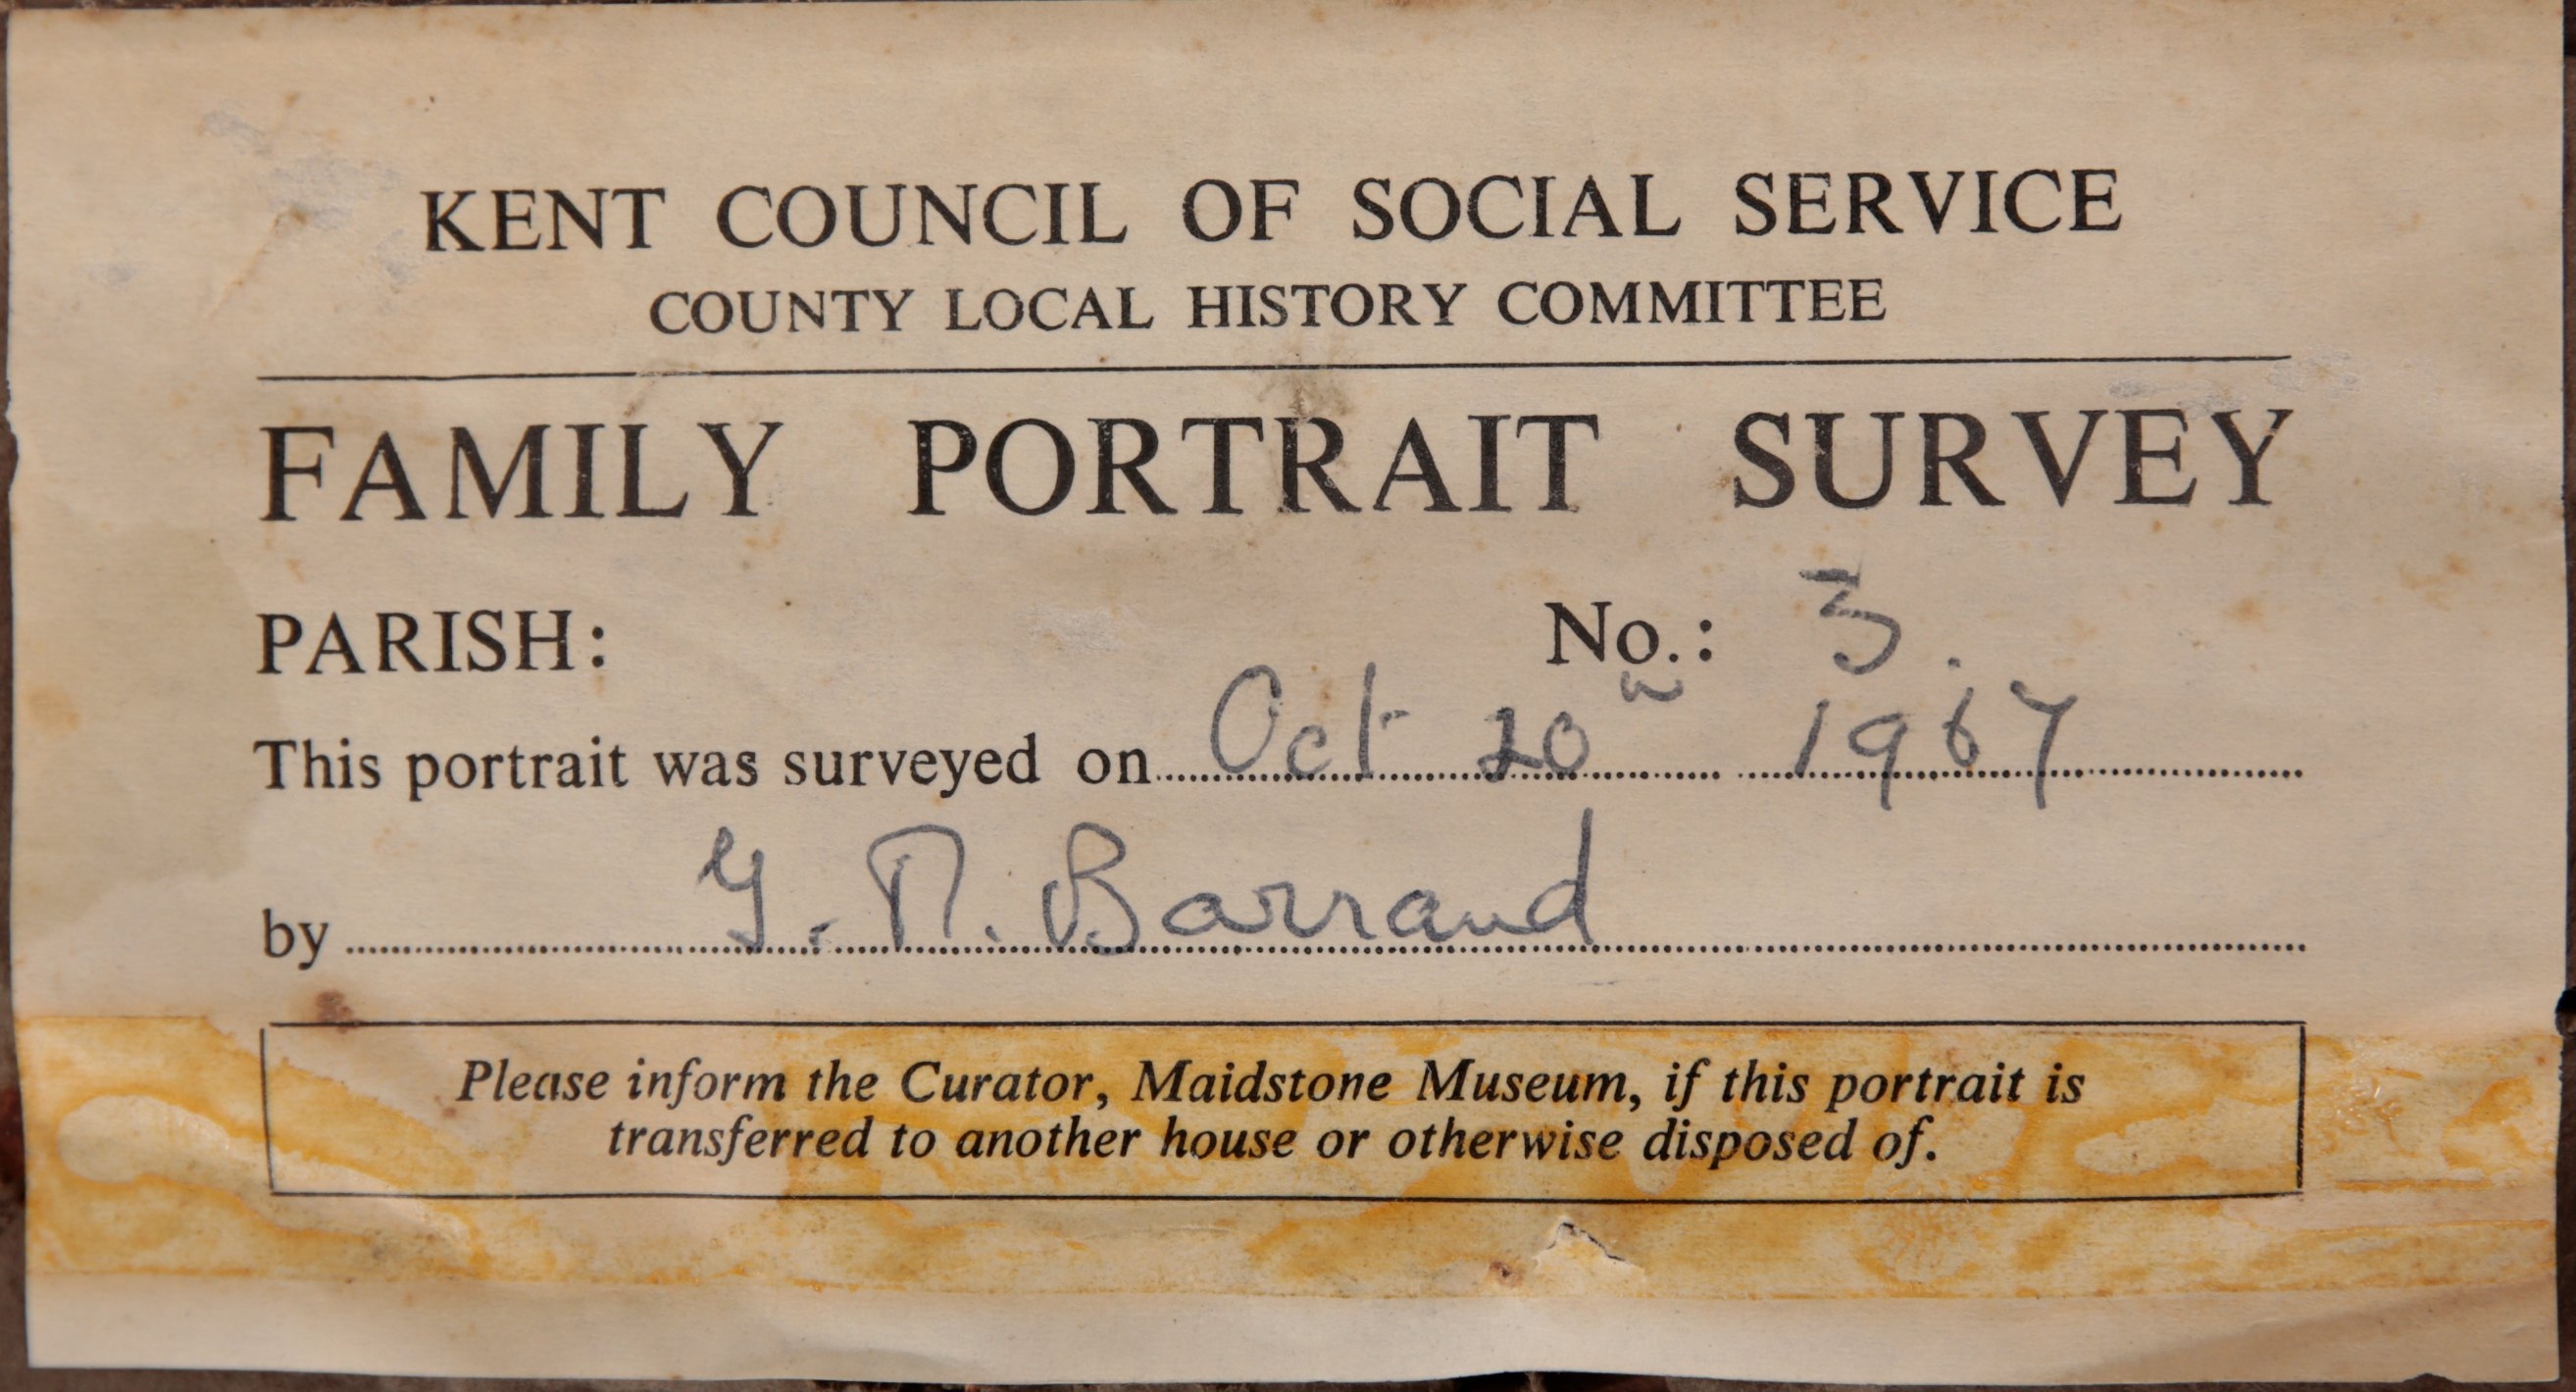 KENT COUNCIL OF SOCIAL SERVICE
COUNTY LOCAL HISTORY COMMITTEE
FAMILY PORTRAIT SURVEY
PARISH: No.: 3.
This portrait was surveyed on Oct 20th 1967
by Barrand
Please inform the Curator, Maidstone Museum, if this portrait is
transferred to another house or otherwise disposed of.